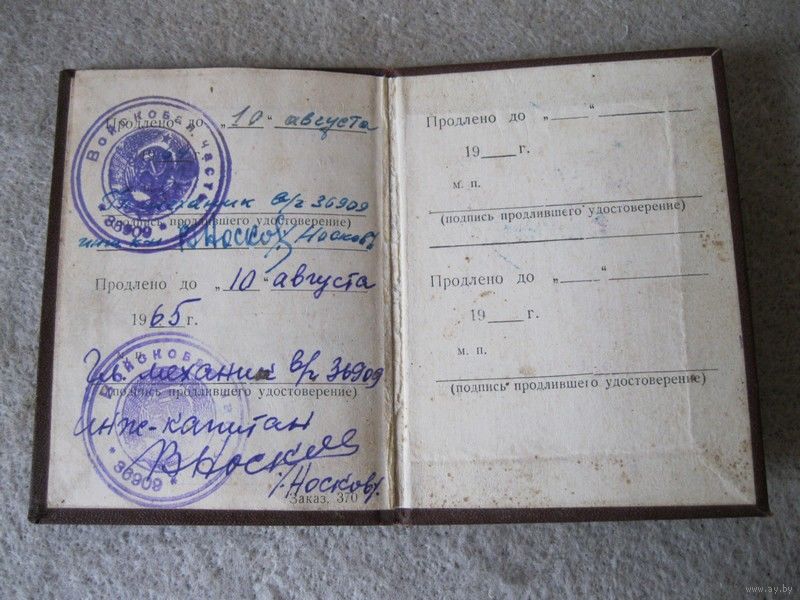 Продлено до „10“ августа
19 г.
Гл. механик в/ч 36909
(подпись продлившего удостоверение)
инж-кап ВНосков /Носков/
Войсковая часть
* 36909 *
Продлено до „10“ августа
1965 г.
Гл. механик в/ч 36909
(подпись продлившего удостоверение)
инж-капитан
ВНосков
/Носков/
Войсковая
* 36909 *
Заказ. 370
Продлено до „ “
19 г.
м. п.
(подпись продлившего удостоверение)
Продлено до „ “
19 г.
м. п.
(подпись продлившего удостоверение)
www.ay.by